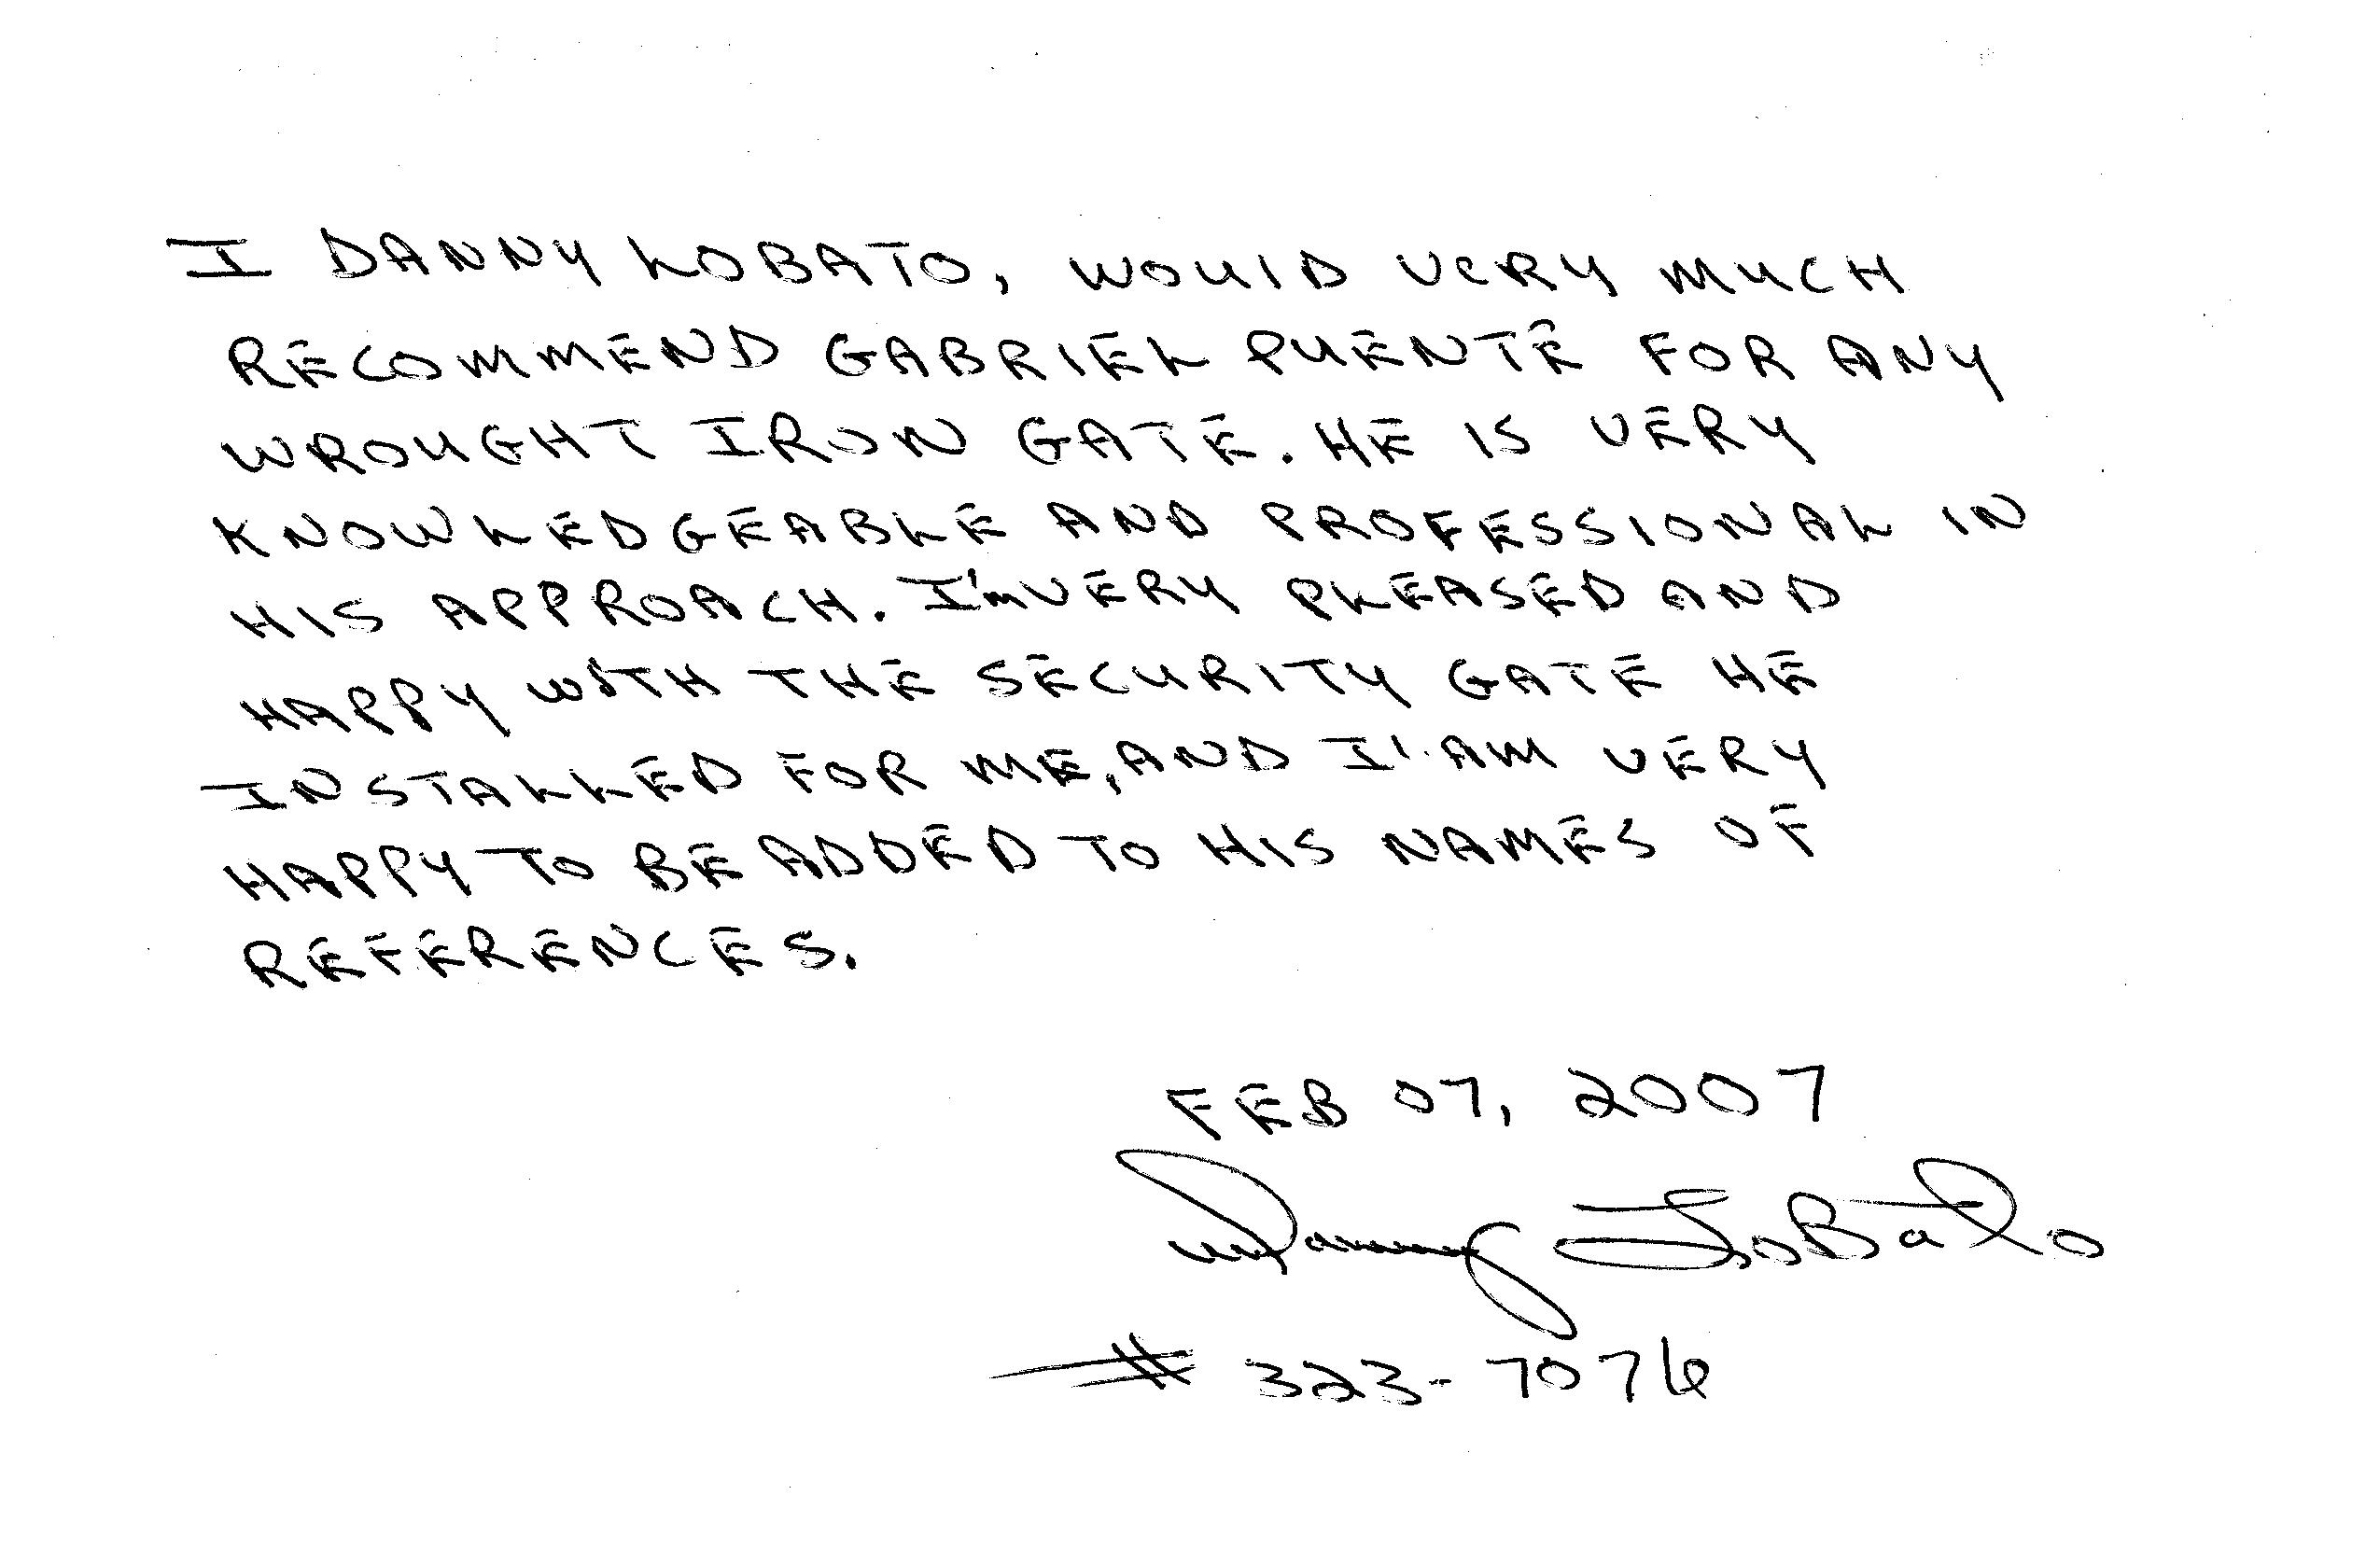 I DANNY LOBATO, WOULD VERY MUCH
RECOMMEND GABRIEL PUENTE FOR ANY
WROUGHT IRON GATE. HE IS VERY
KNOWLEDGEABLE AND PROFESSIONAL IN
HIS APPROACH. I'm VERY PLEASED AND
HAPPY WITH THE SECURITY GATE HE
INSTALLED FOR ME, AND I' AM VERY
HAPPY TO BE ADDED TO HIS NAMES OF
REFERENCES.
FEB 07, 2007
Danny LoBato
# 323-7076